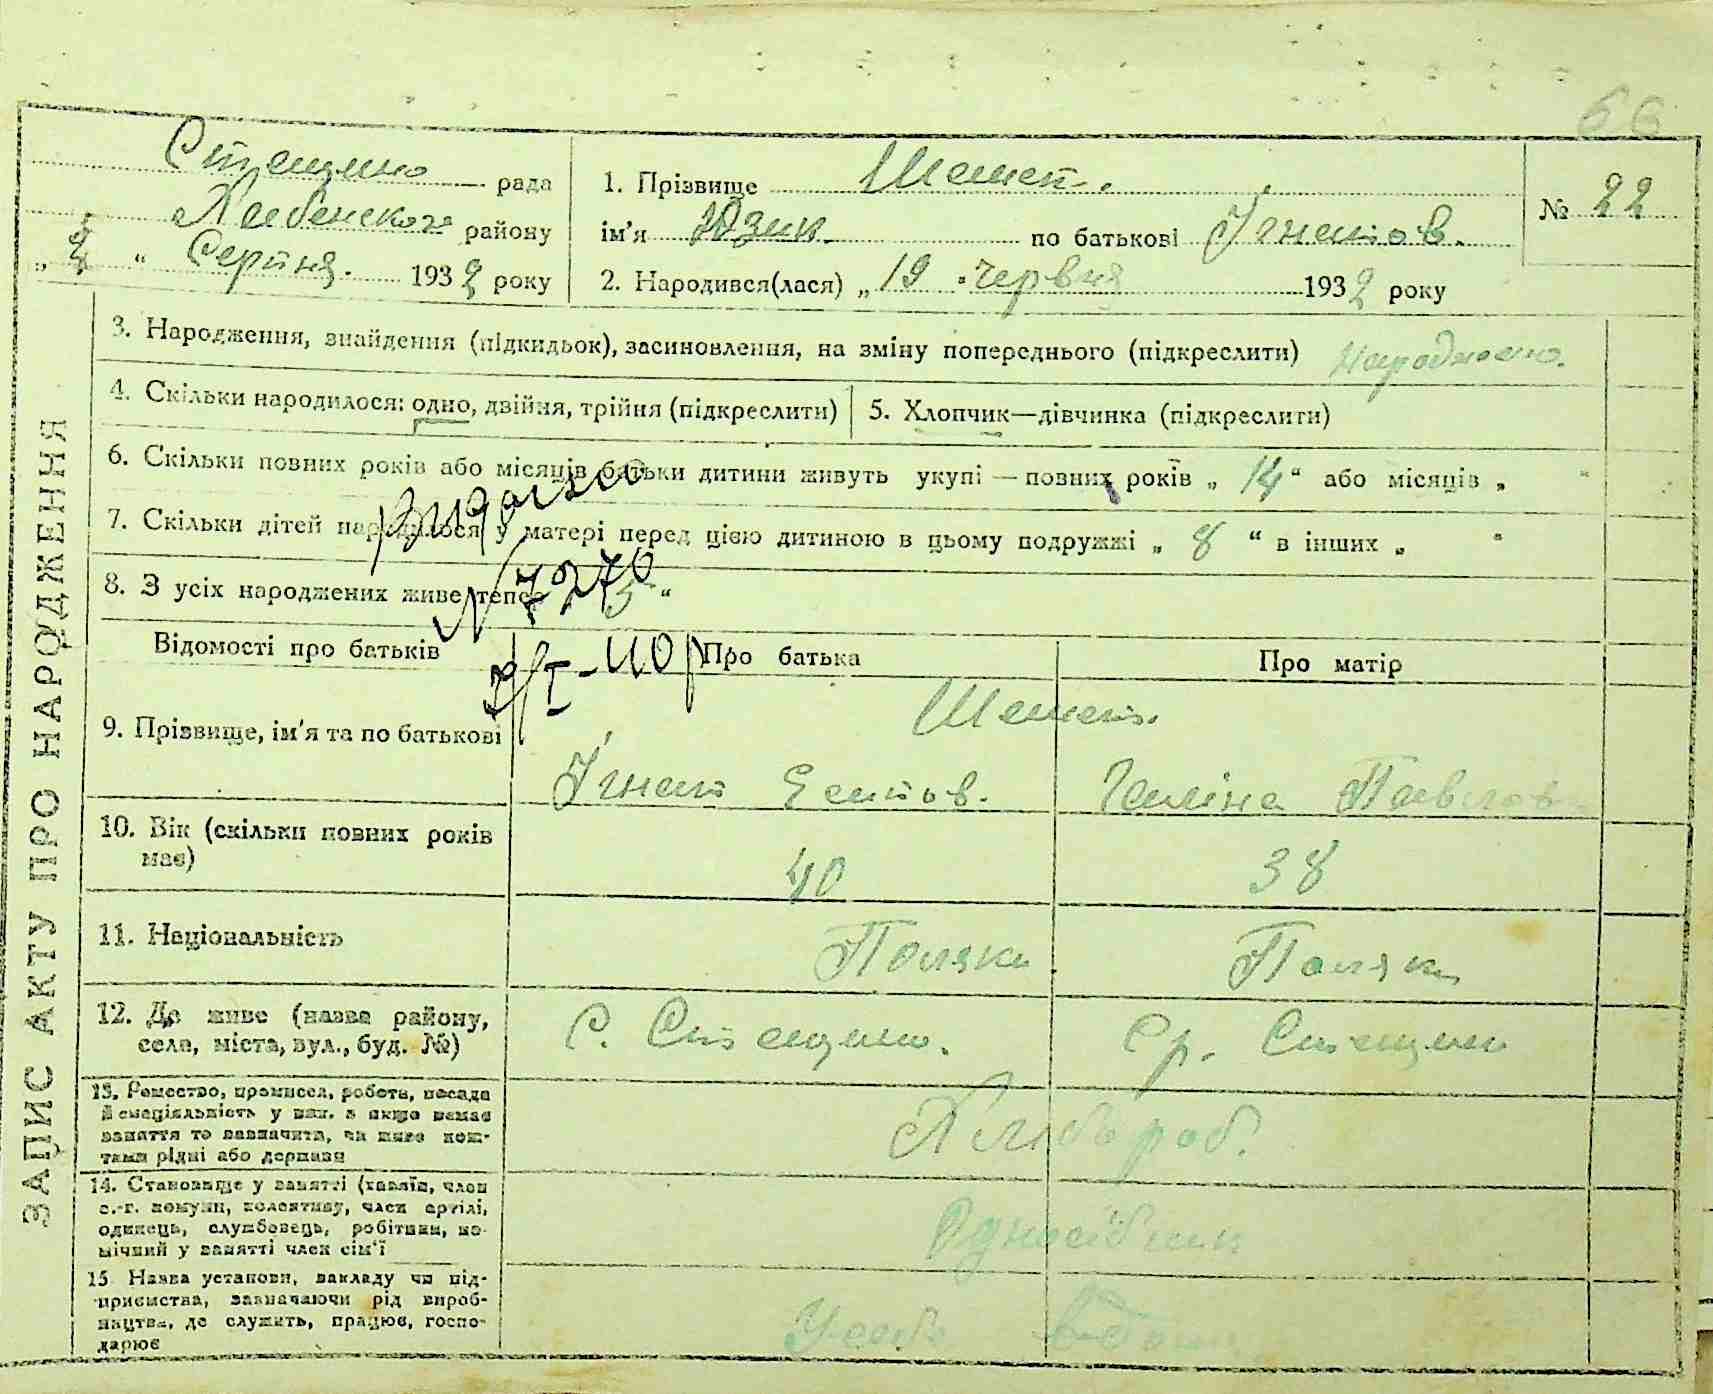 66
Стещино рада
Хабенского району
„ 2 “ Серпня. 1932 року
1. Прізвище Шемет.
ім'я Юзик. по батькові Ігнатов.
2. Народився(лася) „ 19 червня 1932 року
№ 22
ЗАПИС АКТУ ПРО НАРОДЖЕННЯ
3. Народження, знайдення (підкидьок), засиновлення, на зміну попереднього (підкреслити)
4. Скільки народилося: одно, двійня, трійня (підкреслити)
5. Хлопчик—дівчинка (підкреслити)
6. Скільки повних років або місяців батьки дитини живуть укупі — повних років „ 14 “ або місяців „ “
7. Скільки дітей народилося у матері перед цією дитиною в цьому подружжі „ 8 “ в інших „ “
8. З усіх народжених живе тепер 5 “
Видано
№ 7270
Відомості про батьків
Про батька
Про матір
9. Прізвище, ім'я та по батькові
Шемет.
Ігнат
Павлов
10. Вік (скільки повних років
має)
40
38
11. Національність
Поляки
Поляки
12. Де живе (назва району,
села, міста, вул., буд. №)
С. Стещино.
Ср. Стещино
13. Ремество, промисел, робота, посада
й спеціяльність у них, а якщо немає
заняття то зазначити, чи живе кош-
тами рідні або держави
Хлібороб.
14. Становище у занятті (хазяїн, член
с.-г. комуни, колективу, член артілі,
одинець, службовець, робітник, по-
мічний у занятті член сім'ї
Одноосібник
15. Назва установи, закладу чи під-
приємства, зазначаючи рід вироб-
ництва, де служить, працює, госпо-
дарює
У себе